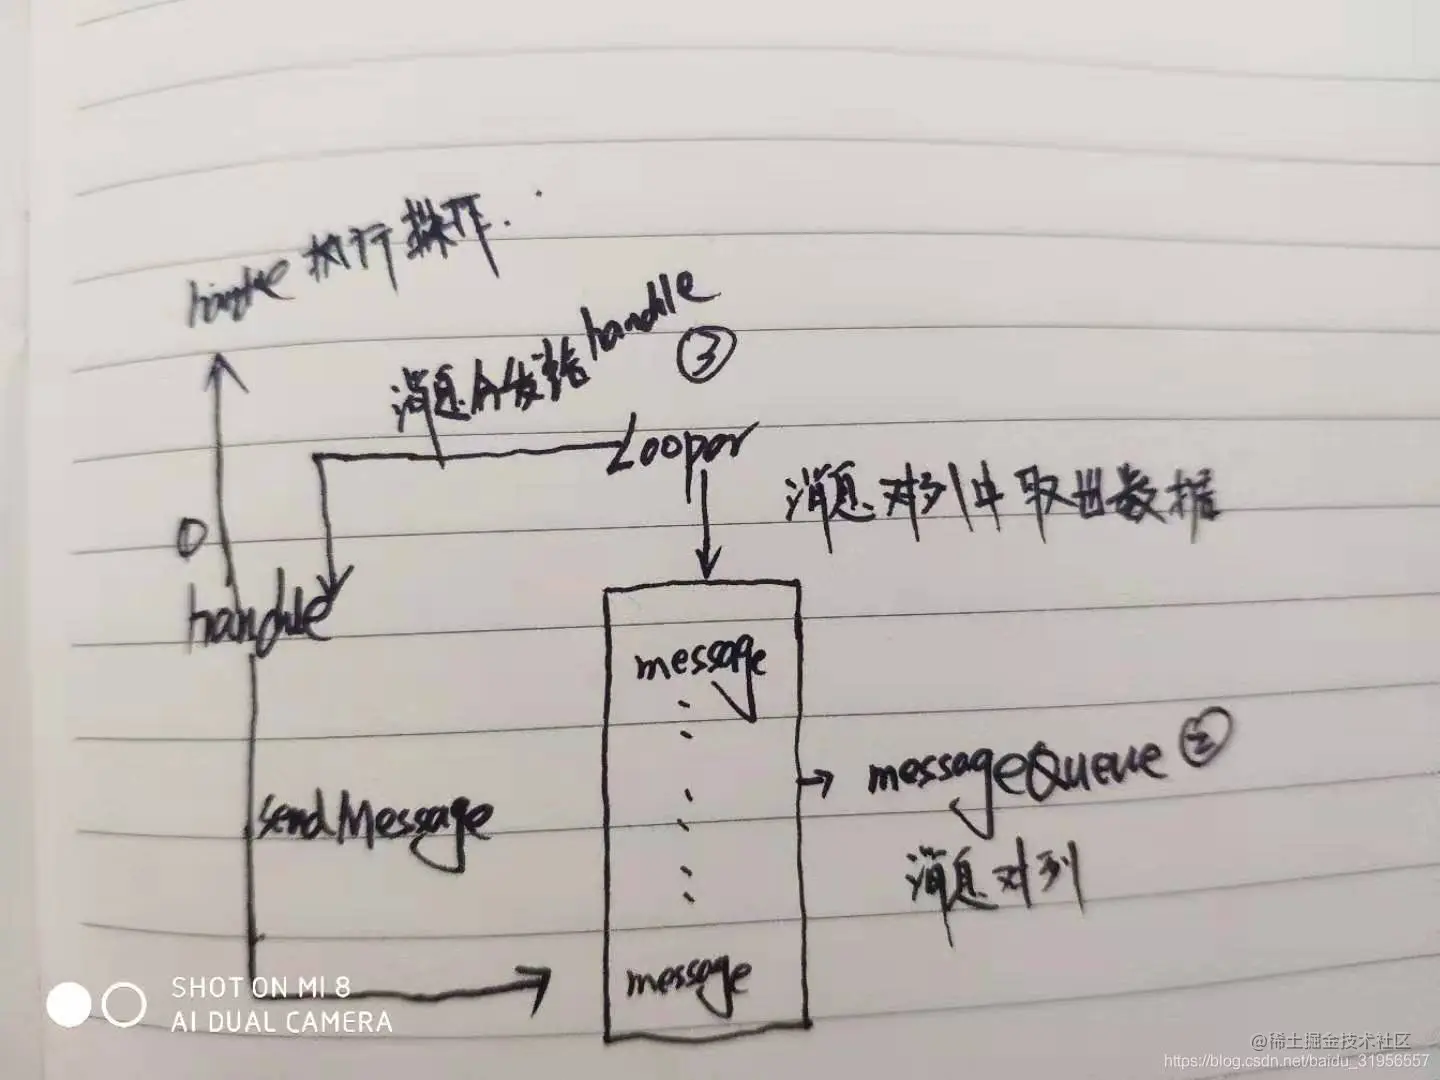 handle 执行操作.
消息分发给handle
③
Looper
消息对列中取出数据
0
handle
message
messageQueue ②
sendMessage
消息对列
message
SHOT ON MI 8
AI DUAL CAMERA
@稀土掘金技术社区
https://blog.csdn.net/baidu_31956557